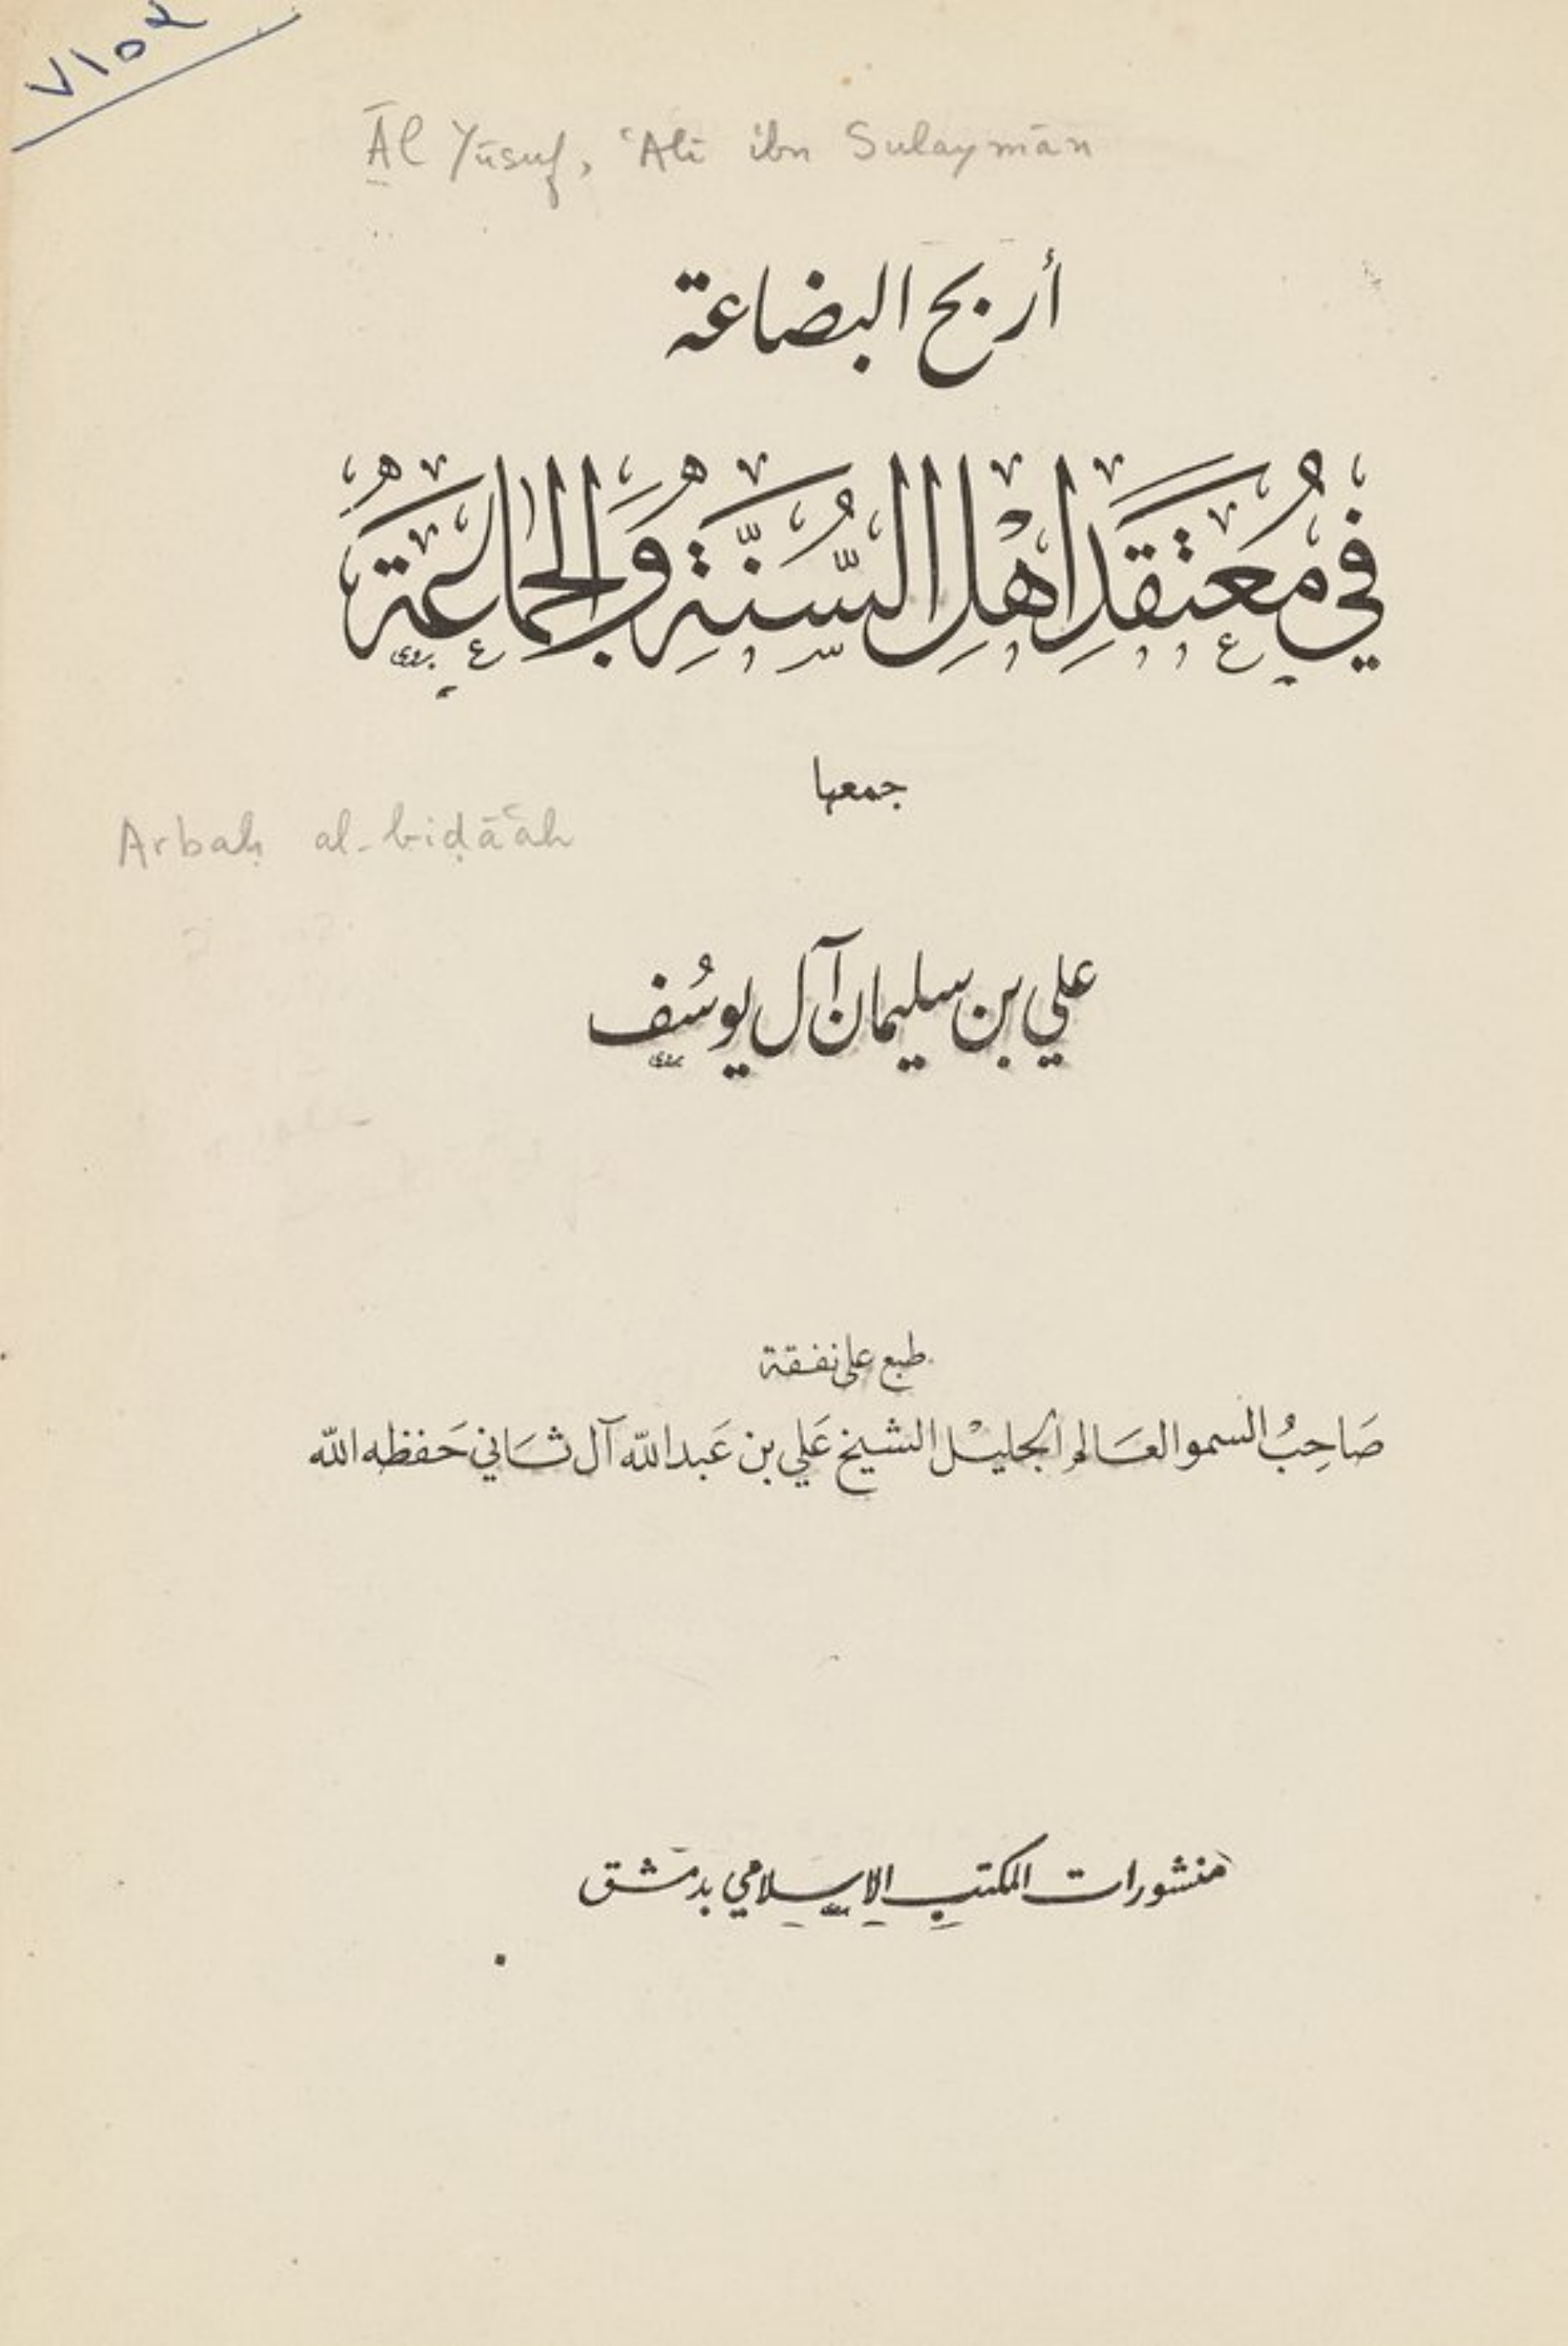 ٧١٥٢
Āl Yūsuf, ʿAlī ibn Sulaymān
أربح البضاعة
في مُعتَقَدِ اهْلِ السُّنَّةِ وَالجمَاعَة
جمعها
Arbaḥ al-biḍāʿah
علي بن سليمان آل يوسُف
طبع على نفقة
صَاحِبُ السمو العَالم الجليْل الشيخ عَلي بن عَبد الله آل ثَاني حَفظه الله
منشورات المكتب الإسلامي بدمشق